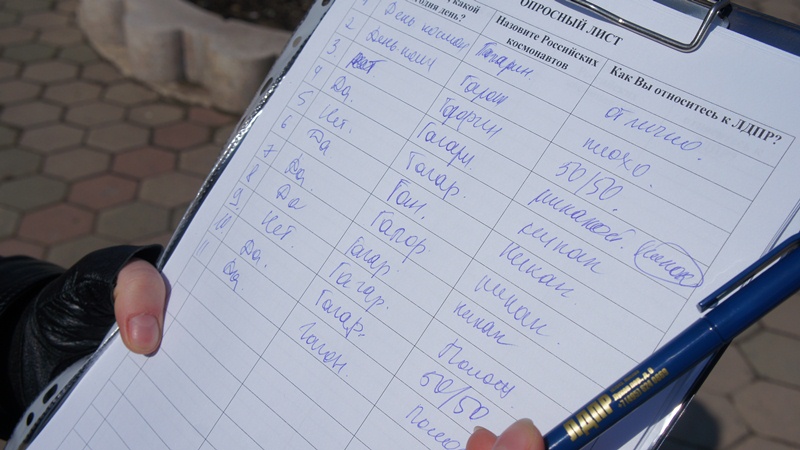 ОПРОСНЫЙ ЛИСТ
какой
день?
Назовите Российских
космонавтов
Как Вы относитесь к ЛДПР?
1 День космон Гагарин отлично.
2 День косм Гагар плохо.
3 нет Гагарин 50/50.
4 Да. Гагарн никакой.
5 Нет. Гагар. никак
6 Да Гаг. Никак
7 Да. Гагар никак.
8 Да Гагар. никак
9 Нет. Гагар. Полож
10 Да. Гагар. 50/50
11 Да Гагар.
ЛДПР